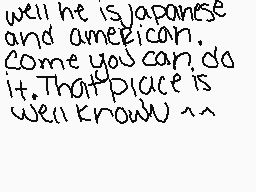 well he is japanese
and american.
come you can do
it. That place is
well known ^^